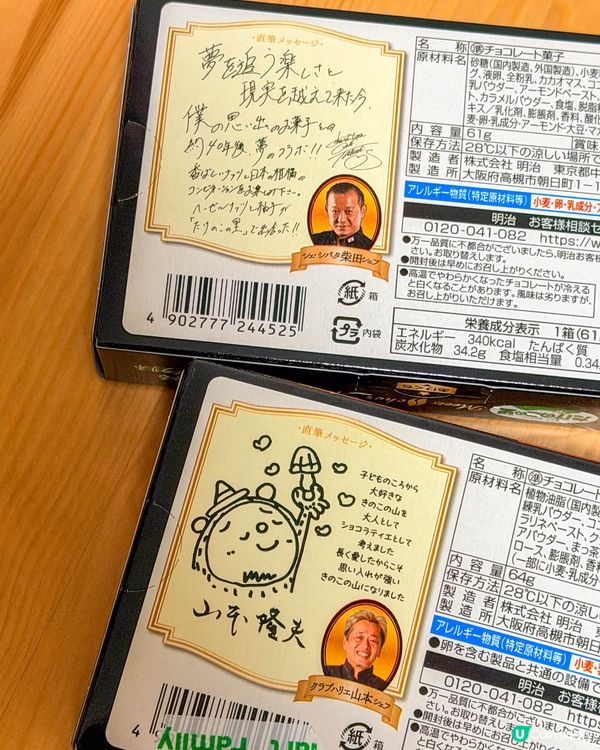 ・直筆メッセージ・
夢を追う楽しさと
現実を越えて来た今、
僕の思い出のお菓子との
約40年後、夢のコラボ!!
香ばしいナッツと日本の柑橘の
コンビネーションをお楽しみ下さい。
ヘーゼルナッツと柚子が
「たけのこの里」で出会った!!
シェ・シバタ柴田シェフ
4 902777 244525
紙 箱
プラ 内袋
名 称 準チョコレート菓子
原材料名 砂糖(国内製造、外国製造)、小麦
グ、液卵、全粉乳、カカオマス、ココ
乳パウダー、アーモンドペースト、
ト、カラメルパウダー、食塩、脱脂粉
キス/乳化剤、膨脹剤、香料、酸化
麦・卵・乳成分・アーモンド・大豆・マカ
内容量 61g 賞味
保存方法 28℃以下の涼しい場所で
製造者 株式会社 明治 東京都中
製造所 大阪府高槻市朝日町1-1
アレルギー物質(特定原材料等) 小麦・卵・乳成分・ア
明治 お客様相談セ
0120-041-082 https://w
●万一品質に不都合がございましたら、明治お客様
さい。お取替えします。
●開封後は早めにお召し上がりください。
●高温でやわらかくなったチョコレートが冷える
と白くなることがあります。風味は劣りますが、
お召し上がりいただけます。
栄養成分表示 1箱(61
エネルギー 340kcal たんぱく質
炭水化物 34.2g 食塩相当量 0.34
・直筆メッセージ・
子どものころから
大好きな
きのこの山を
大人として
ショコラティエとして
考えました
長く愛したからこそ
思い入れが強い
きのこの山になりました
山本隆夫
クラブハリエ山本シェフ
4
Family
紙 箱
名 称 準チョコレート菓子
原材料名 植物油脂(国内製
練乳パウダー、ココ
ラリネペースト、ク
アパウダー、まっ茶
ロース、膨脹剤、香料
(一部に小麦・乳成分・
内容量 64g
保存方法 28℃以下の涼し
製造者 株式会社 明治
製造所 大阪府高槻市朝日
アレルギー物質(特定原材料等) 小麦・
●卵を含む製品と共通の設備で
明治 お客
0120-041-082 ht
●万一品質に不都合がございましたら、
さい。お取替えします。
●開封後は早めに
●高温でやわらかく